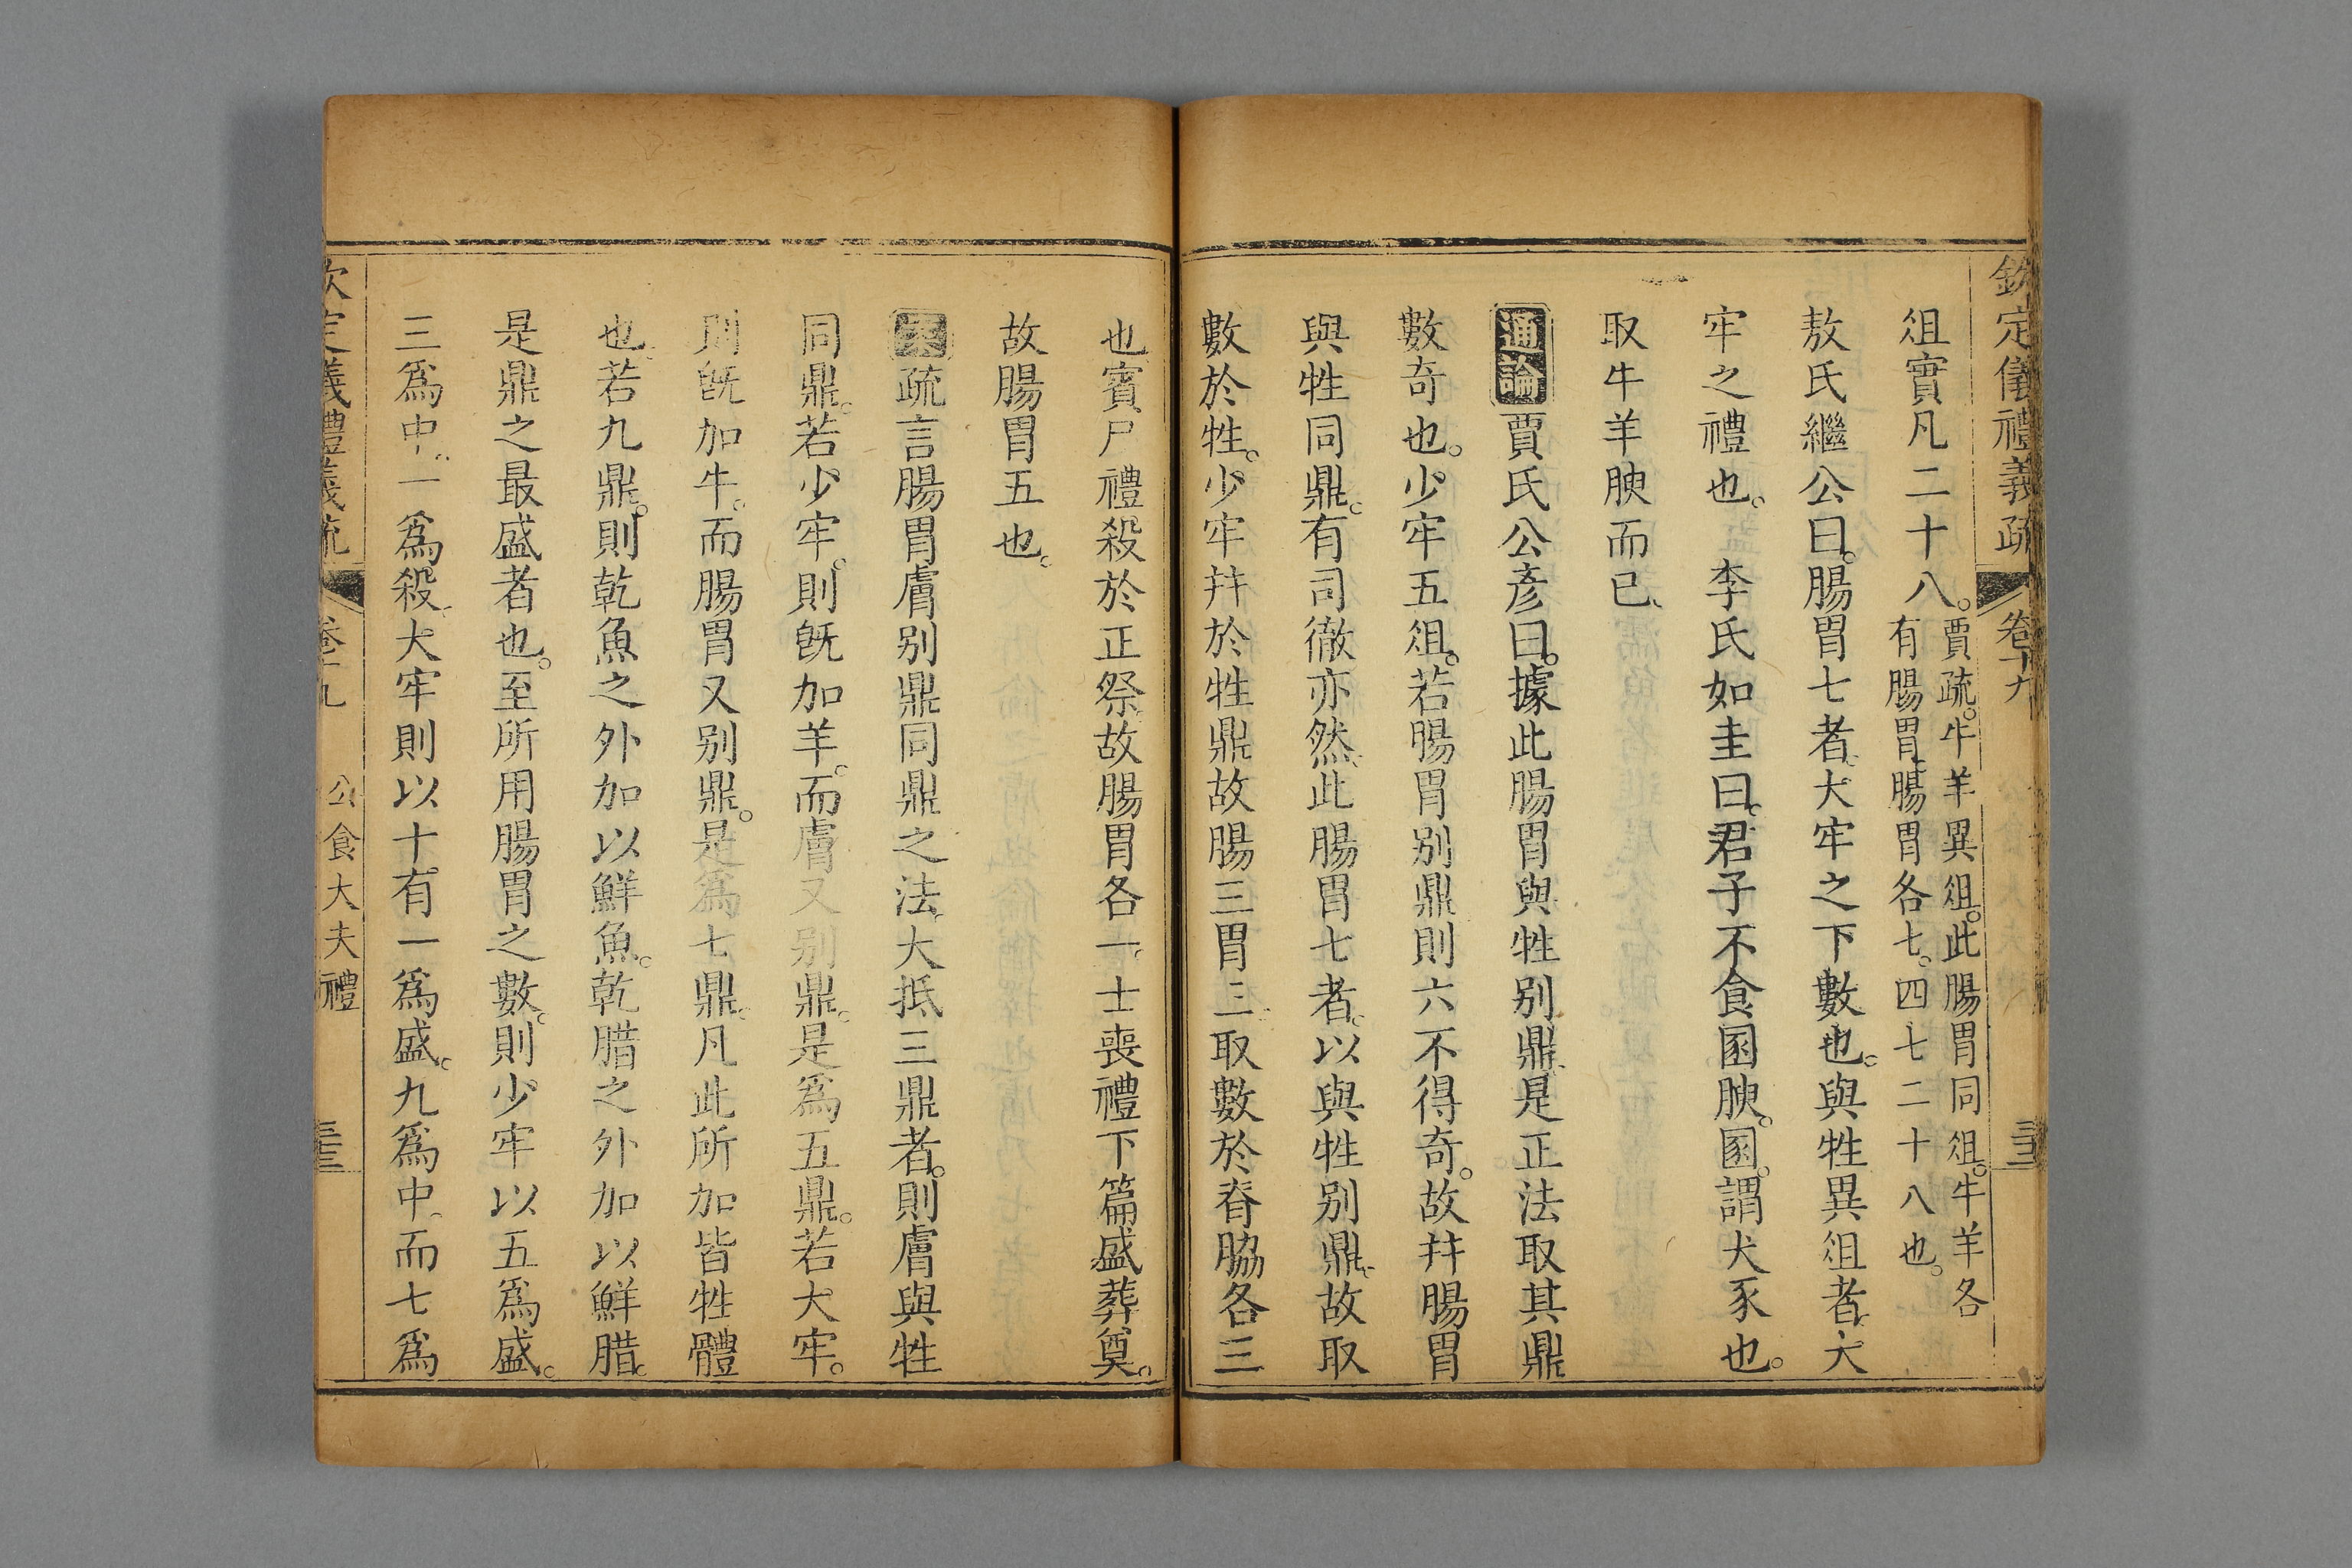 欽定儀禮義疏 卷十九
俎實凡二十八。
賈疏。牛羊異俎。此腸胃同俎。牛羊各
有腸胃。腸胃各七。四七二十八也。
敖氏繼公曰。腸胃七者。大牢之下數也。與牲異俎者。大
牢之禮也。 李氏如圭曰。君子不食圂腴。圂。謂犬豕也。
取牛羊腴而已。
通論 賈氏公彥曰。據此腸胃與牲别鼎。是正法取其鼎
數奇也。少牢五俎。若腸胃别鼎則六不得奇。故幷腸胃
與牲同鼎。有司徹亦然。此腸胃七者。以與牲别鼎。故取
數於牲。少牢幷於牲鼎故腸三胃三。取數於脊脇各三
也。賓尸禮殺於正祭。故腸胃各一。士喪禮下篇盛葬奠。
故腸胃五也。
案 疏言腸胃膚别鼎同鼎之法。大抵三鼎者。則膚與牲
同鼎。若少牢。則旣加羊。而膚又别鼎。是爲五鼎。若大牢。
則旣加牛。而腸胃又别鼎。是爲七鼎。凡此所加皆牲體
也。若九鼎。則乾魚之外加以鮮魚。乾腊之外加以鮮腊。
是鼎之最盛者也。至所用腸胃之數。則少牢以五爲盛。
三爲中。一爲殺。大牢則以十有一爲盛。九爲中。而七爲
欽定儀禮義疏 卷十九 公食大夫禮